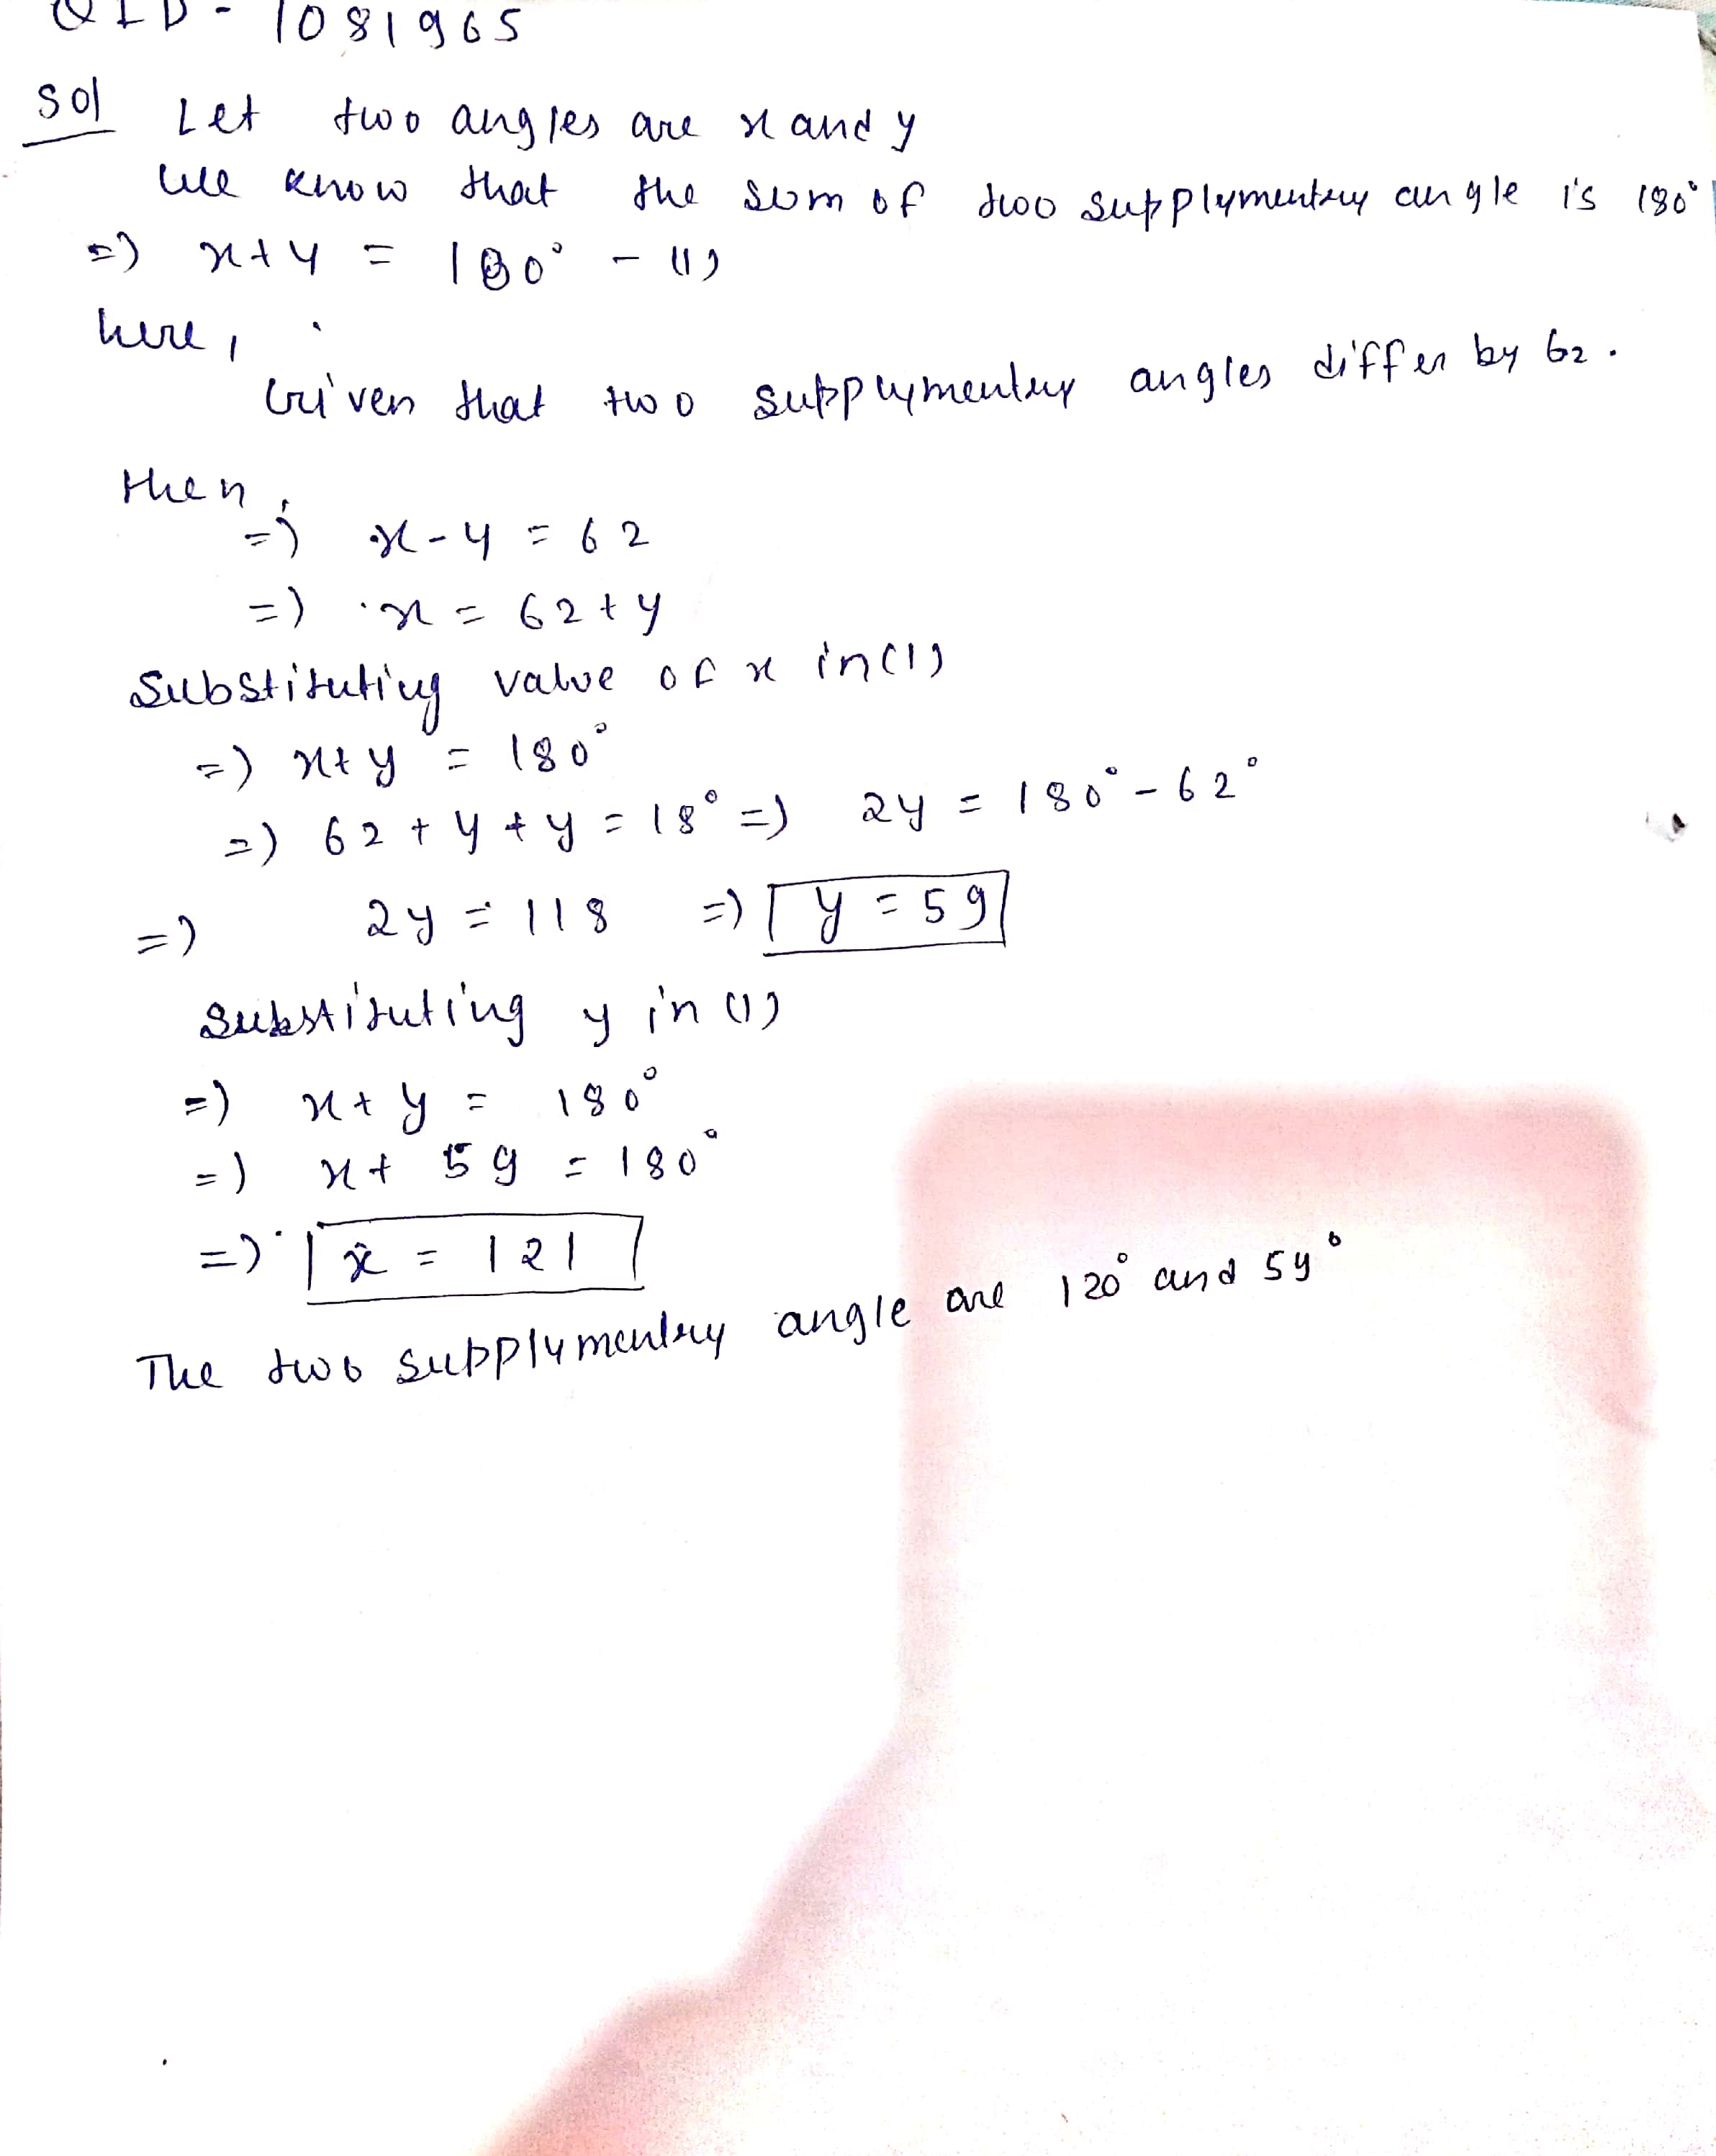 QID - 1081965
Sol Let two angles are x and y
We know that the sum of two supplymentry angle is 180°
=) x+y = 180° - (1)
here,
Given that two supplymentry angles differ by 62.
then,
=) x-y = 62
=) x = 62+y
Substituting value of x in (1)
=) x+y = 180°
=) 62+y+y = 18° =) 2y = 180° - 62°
=) 2y = 118 =) y = 59
Substituting y in (1)
=) x+y = 180°
=) x+ 59 = 180°
=) x = 121
The two supplymentry angle are 120° and 59°